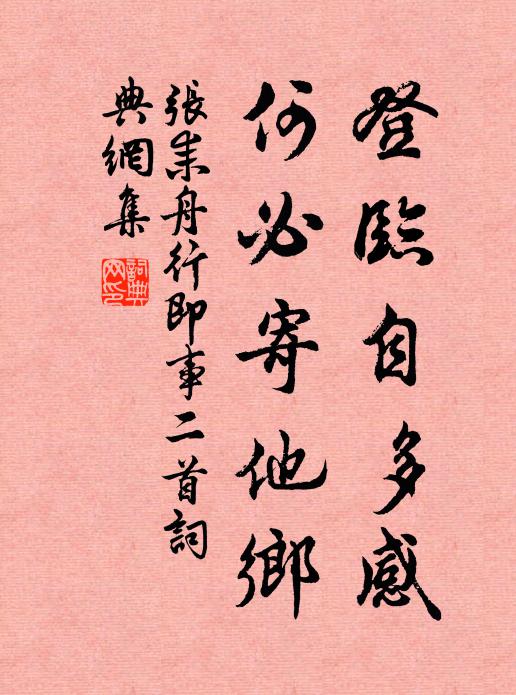 登臨自多感
何必寄他鄉
張耒舟行即事二首詞
典網集
詞典網印